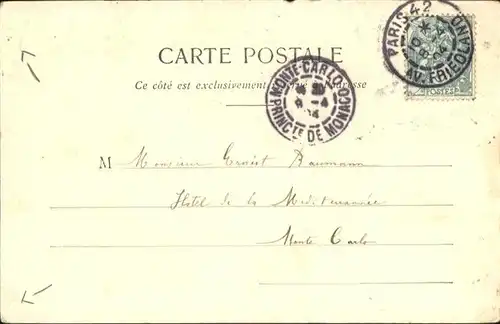 CARTE POSTALE
Ce côté est exclusivement adresse
PARIS 42
AV. FRIEDLAND
MONTE-CARLO
PRINCTE DE MONACO
POSTES
M Monsieur Ernest Baumann
Hôtel de la Méditerranée
Monte Carlo